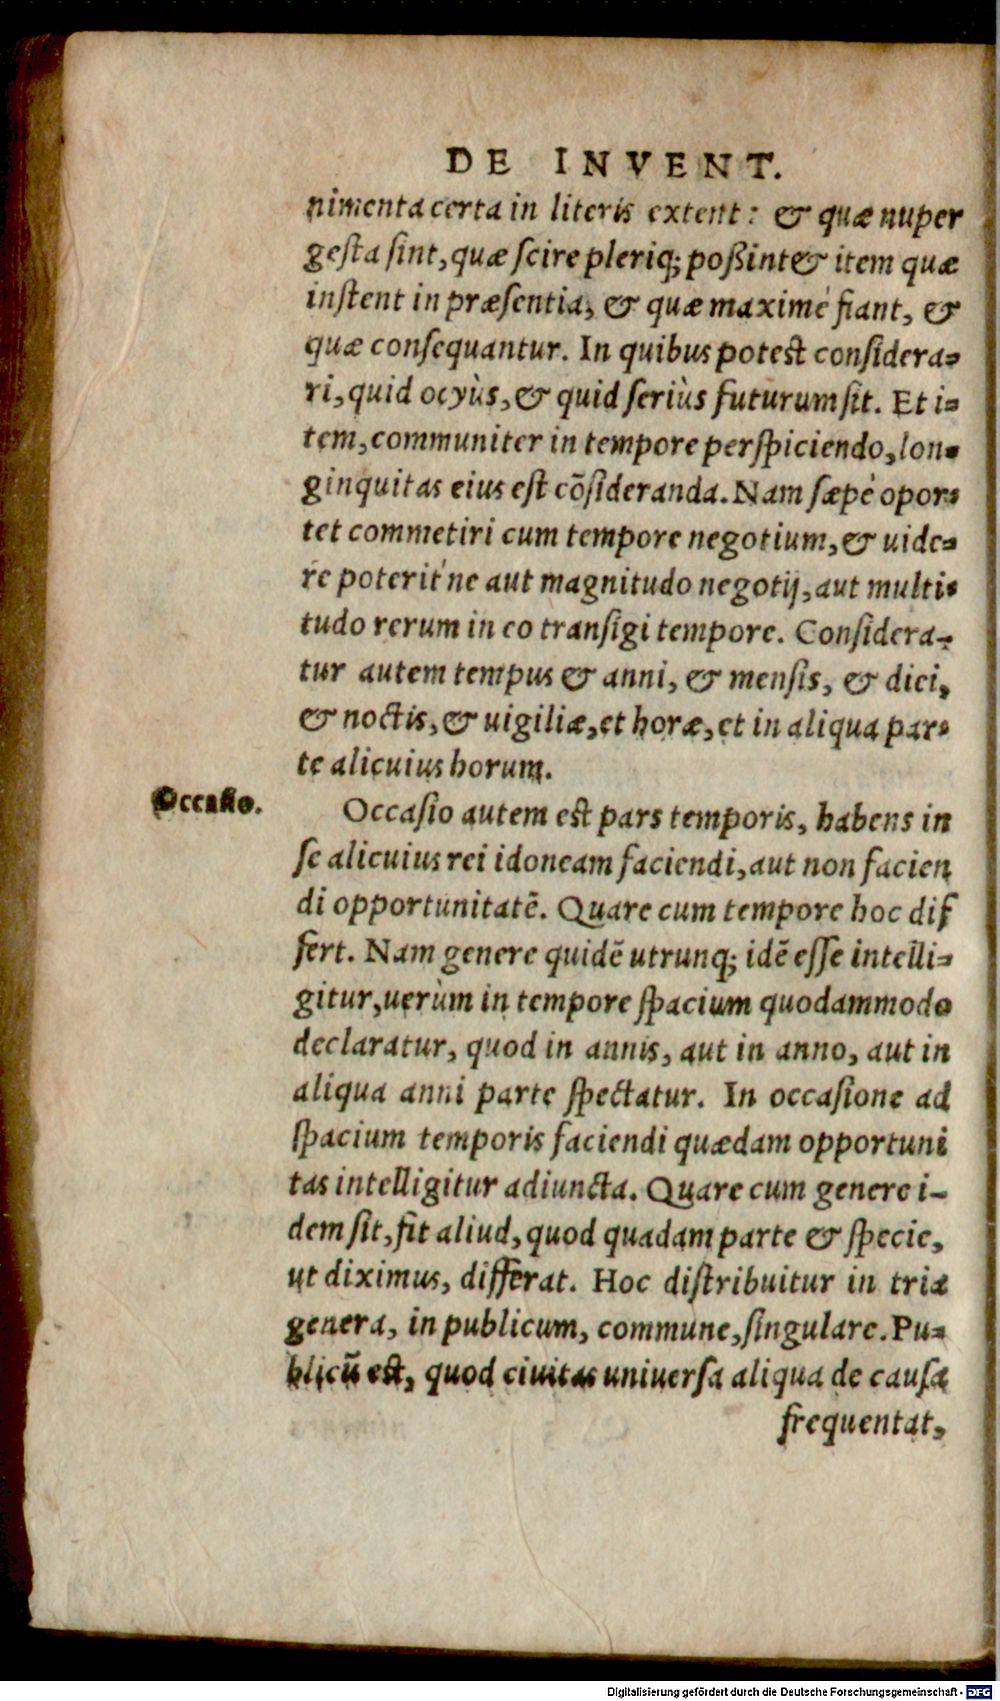 DE INVENT.
nimenta certa in literis extent: & quæ nuper
gesta sint, quæ scire pleriq; poßint & item quæ
instent in præsentia, & quæ maximè fiant, &
quæ consequantur. In quibus potest considera-
ri, quid ocyùs, & quid seriùs futurum sit. Et i-
tem, communiter in tempore perspiciendo, lon-
ginquitas eius est cõsideranda. Nam sæpè opor-
tet commetiri cum tempore negotium, & uide-
re poterit'ne aut magnitudo negotij, aut multi-
tudo rerum in eo transigi tempore. Considera-
tur autem tempus & anni, & mensis, & diei,
& noctis, & uigiliæ, et horæ, et in aliqua par-
te alicuius horum.
Occasio.
Occasio autem est pars temporis, habens in
se alicuius rei idoneam faciendi, aut non facien
di opportunitatē. Quare cum tempore hoc dif
fert. Nam genere quidē utrunq; idē esse intelli-
gitur, uerùm in tempore spacium quodammodo
declaratur, quod in annis, aut in anno, aut in
aliqua anni parte spectatur. In occasione ad
spacium temporis faciendi quædam opportuni
tas intelligitur adiuncta. Quare cum genere i-
dem sit, fit aliud, quod quadam parte & specie,
ut diximus, differat. Hoc distribuitur in tria
genera, in publicum, commune, singulare. Pu-
blicū est, quod ciuitas uniuersa aliqua de causa
frequentat,
Digitalisierung gefördert durch die Deutsche Forschungsgemeinschaft - DFG